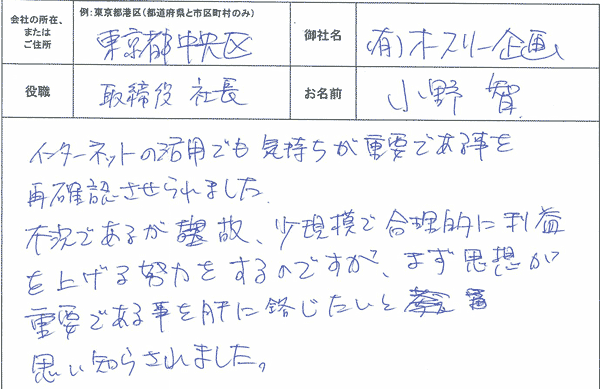 会社の所在、またはご住所
例:東京都港区(都道府県と市区町村のみ)
東京都中央区
御社名
(有)オースリー企画
役職
取締役 社長
お名前
小野 智
インターネットの活用でも気持ちが重要である事を
再確認させられました。
不況であるが故、少規模で合理的に利益
を上げる努力をするのですが、まず思想が
重要である事を肝に銘じたいと
思い知らされました。